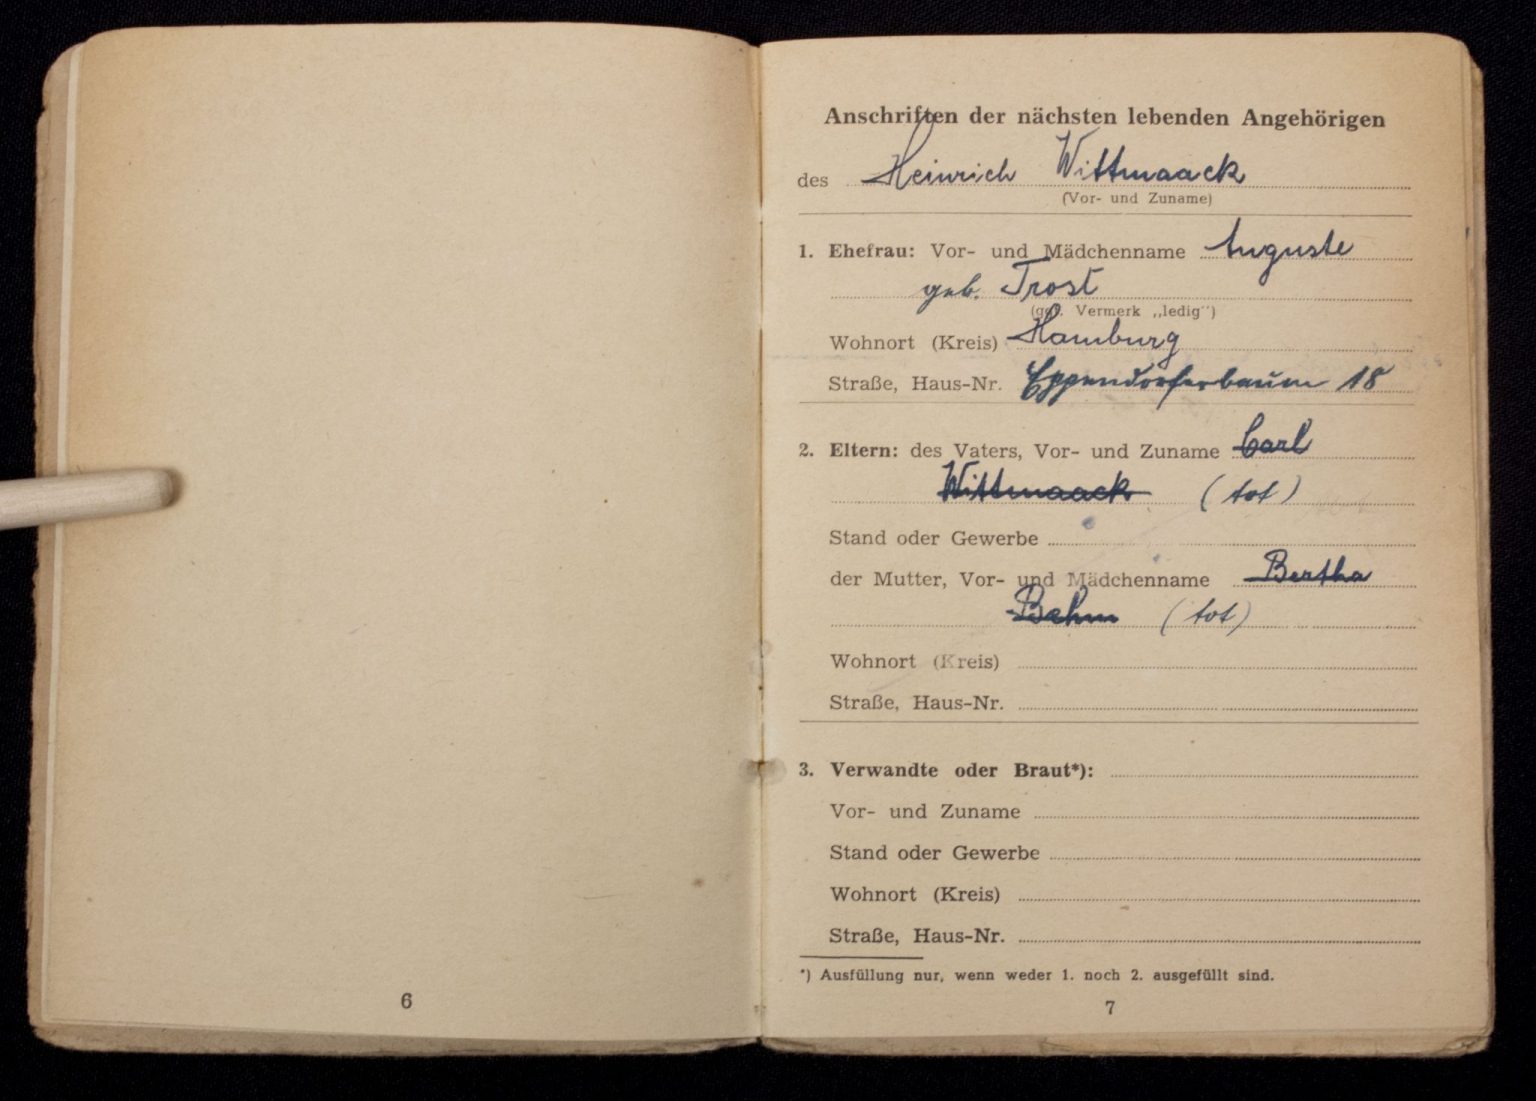 Anschriften der nächsten lebenden Angehörigen
des Heinrich Wittmaack
(Vor- und Zuname)
1. Ehefrau: Vor- und Mädchenname Auguste
geb. Trost
(ggf. Vermerk „ledig“)
Wohnort (Kreis) Hamburg
Straße, Haus-Nr. Eppendorferbaum 18
2. Eltern: des Vaters, Vor- und Zuname Carl
Wittmaack (tot)
Stand oder Gewerbe
der Mutter, Vor- und Mädchenname Bertha
Behm (tot)
Wohnort (Kreis)
Straße, Haus-Nr.
3. Verwandte oder Braut*):
Vor- und Zuname
Stand oder Gewerbe
Wohnort (Kreis)
Straße, Haus-Nr.
*) Ausfüllung nur, wenn weder 1. noch 2. ausgefüllt sind.
6
7